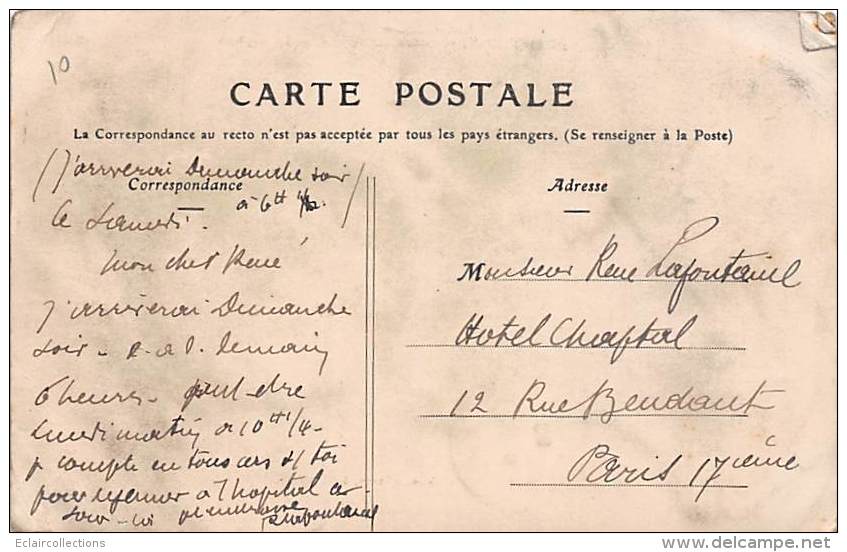 10
CARTE POSTALE
La Correspondance au recto n'est pas acceptée par tous les pays étrangers. (Se renseigner à la Poste)
(J'arriverai Dimanche soir
à 6H 1/2.)
Correspondance
Ce Samedi.
Mon cher René
J'arriverai Dimanche
soir - c. a. d. demain
6 heures - peut-être
Lundi matin à 10H 1/4 -
compte en tous cas s/ toi
pour à l'hopital ce
soir -
Adresse
Monsieur René Lafontaine
Hotel Chaptal
12 Rue Beudant
Paris 17ième
Eclaircollections
www.delcampe.net